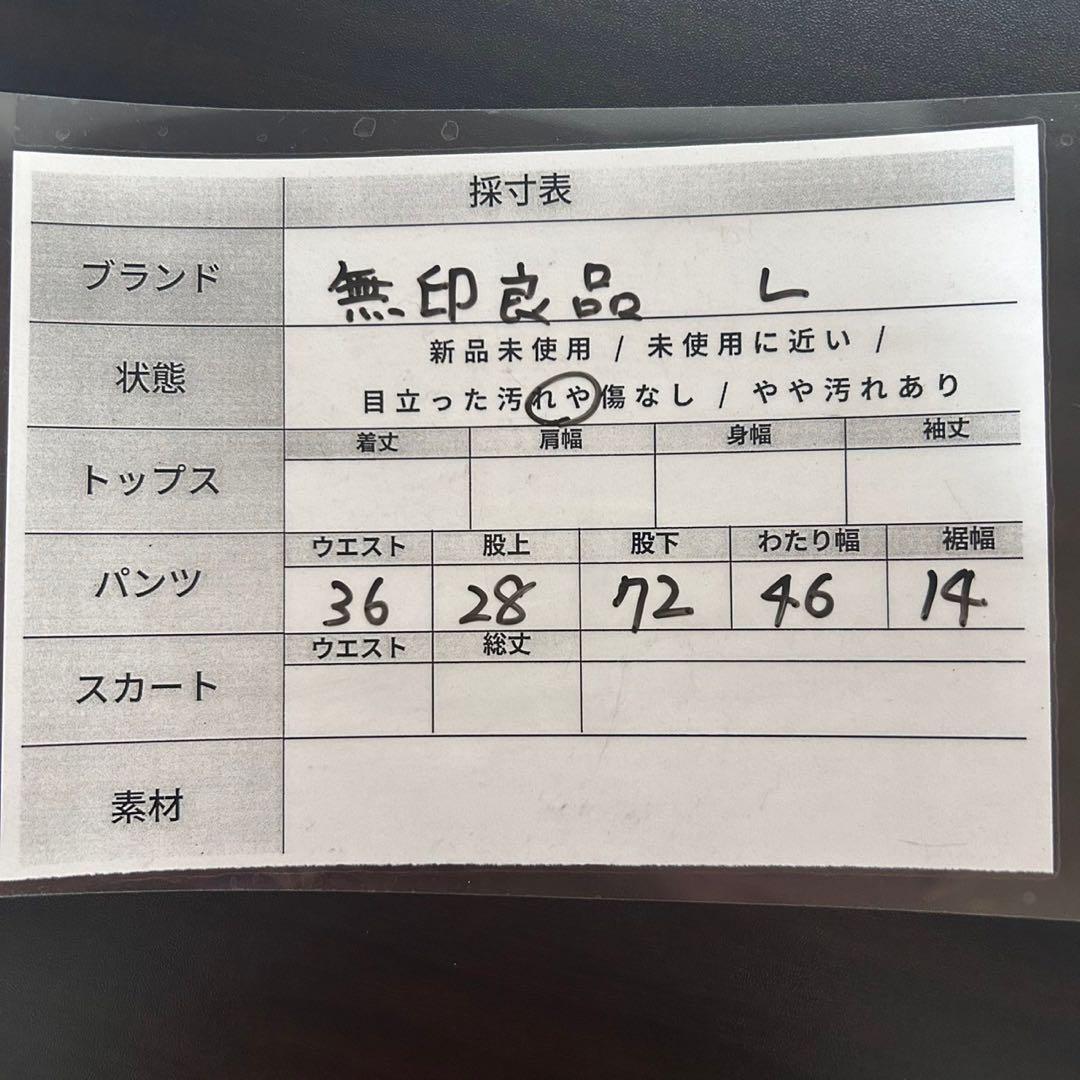 採寸表
ブランド 無印良品 L
状態 新品未使用 / 未使用に近い /
目立った汚れや傷なし / やや汚れあり
トップス 着丈 肩幅 身幅 袖丈
パンツ ウエスト 股上 股下 わたり幅 裾幅
36 28 72 46 14
スカート ウエスト 総丈
素材